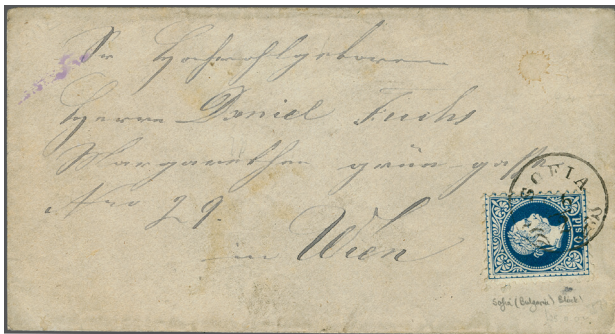 Sr Hochwohlgeboren
Herrn Daniel Fuchs
Margarethen grün gasse
Nro 29.
in Wien
SOFIA
Sofia (Bulgarie)